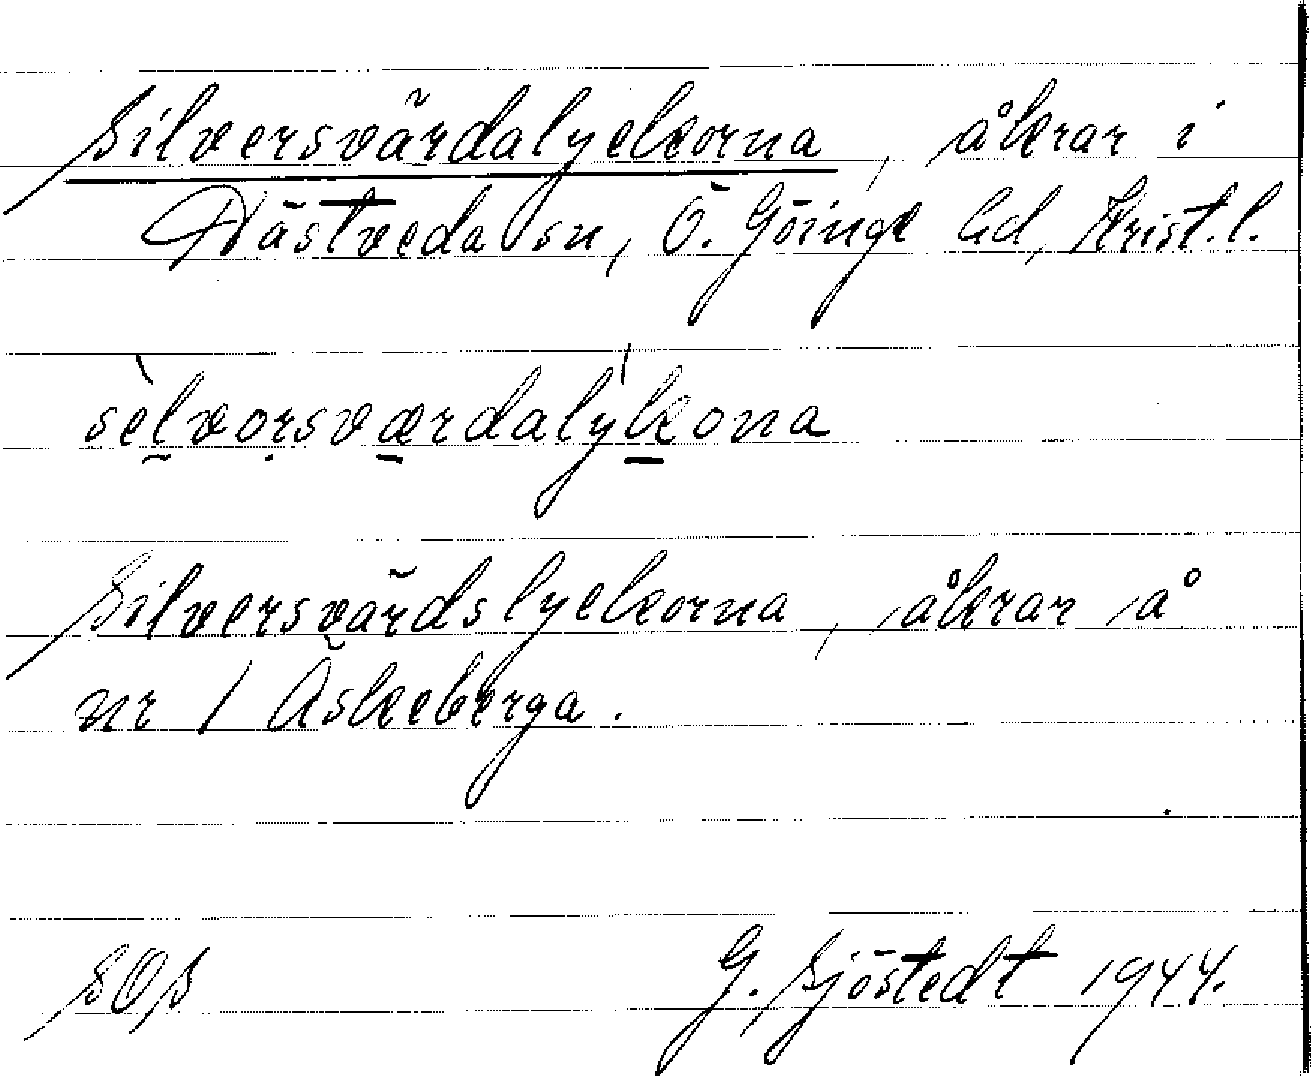 Silversvärdalyckorna, åkrar i
Hästveda sn, Ö. Göinge hd, Krist.l.
sèlvorsværdalỳkona
Silversvärdslyckorna, åkrar å
nr 1 Äskeberga.
SOS G. Sjöstedt 1944.